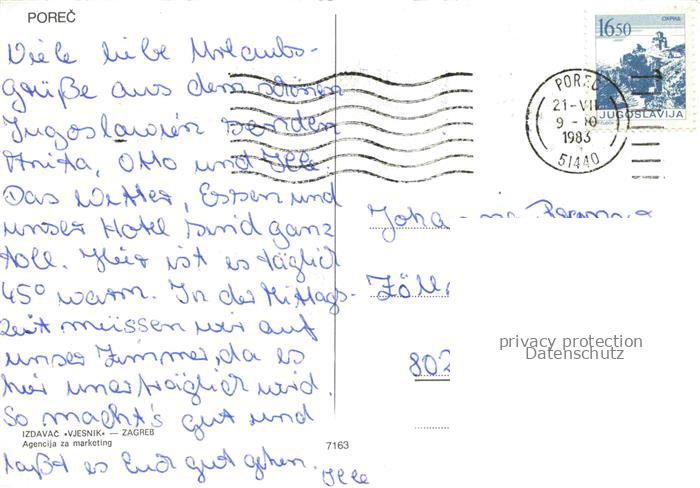 POREČ
Viele liebe Urlaubs-
grüße aus dem schönen
Jugoslawien senden
Anita, Otto und Ille.
Das Wetter, Essen und
unser Hotel sind ganz
toll. Hier ist es täglich
45° warm. In der Mittags-
zeit müssen wir auf
unser Zimmer, da es
hier unerträglich wird.
So macht's gut und
IZDAVAČ »VJESNIK« — ZAGREB
Agencija za marketing
laßt es Euch gut gehen.
Ille
7163
16.50
JUGOSLAVIJA
POREČ
21-VII
9-10
1983
51440
802
privacy protection
Datenschutz